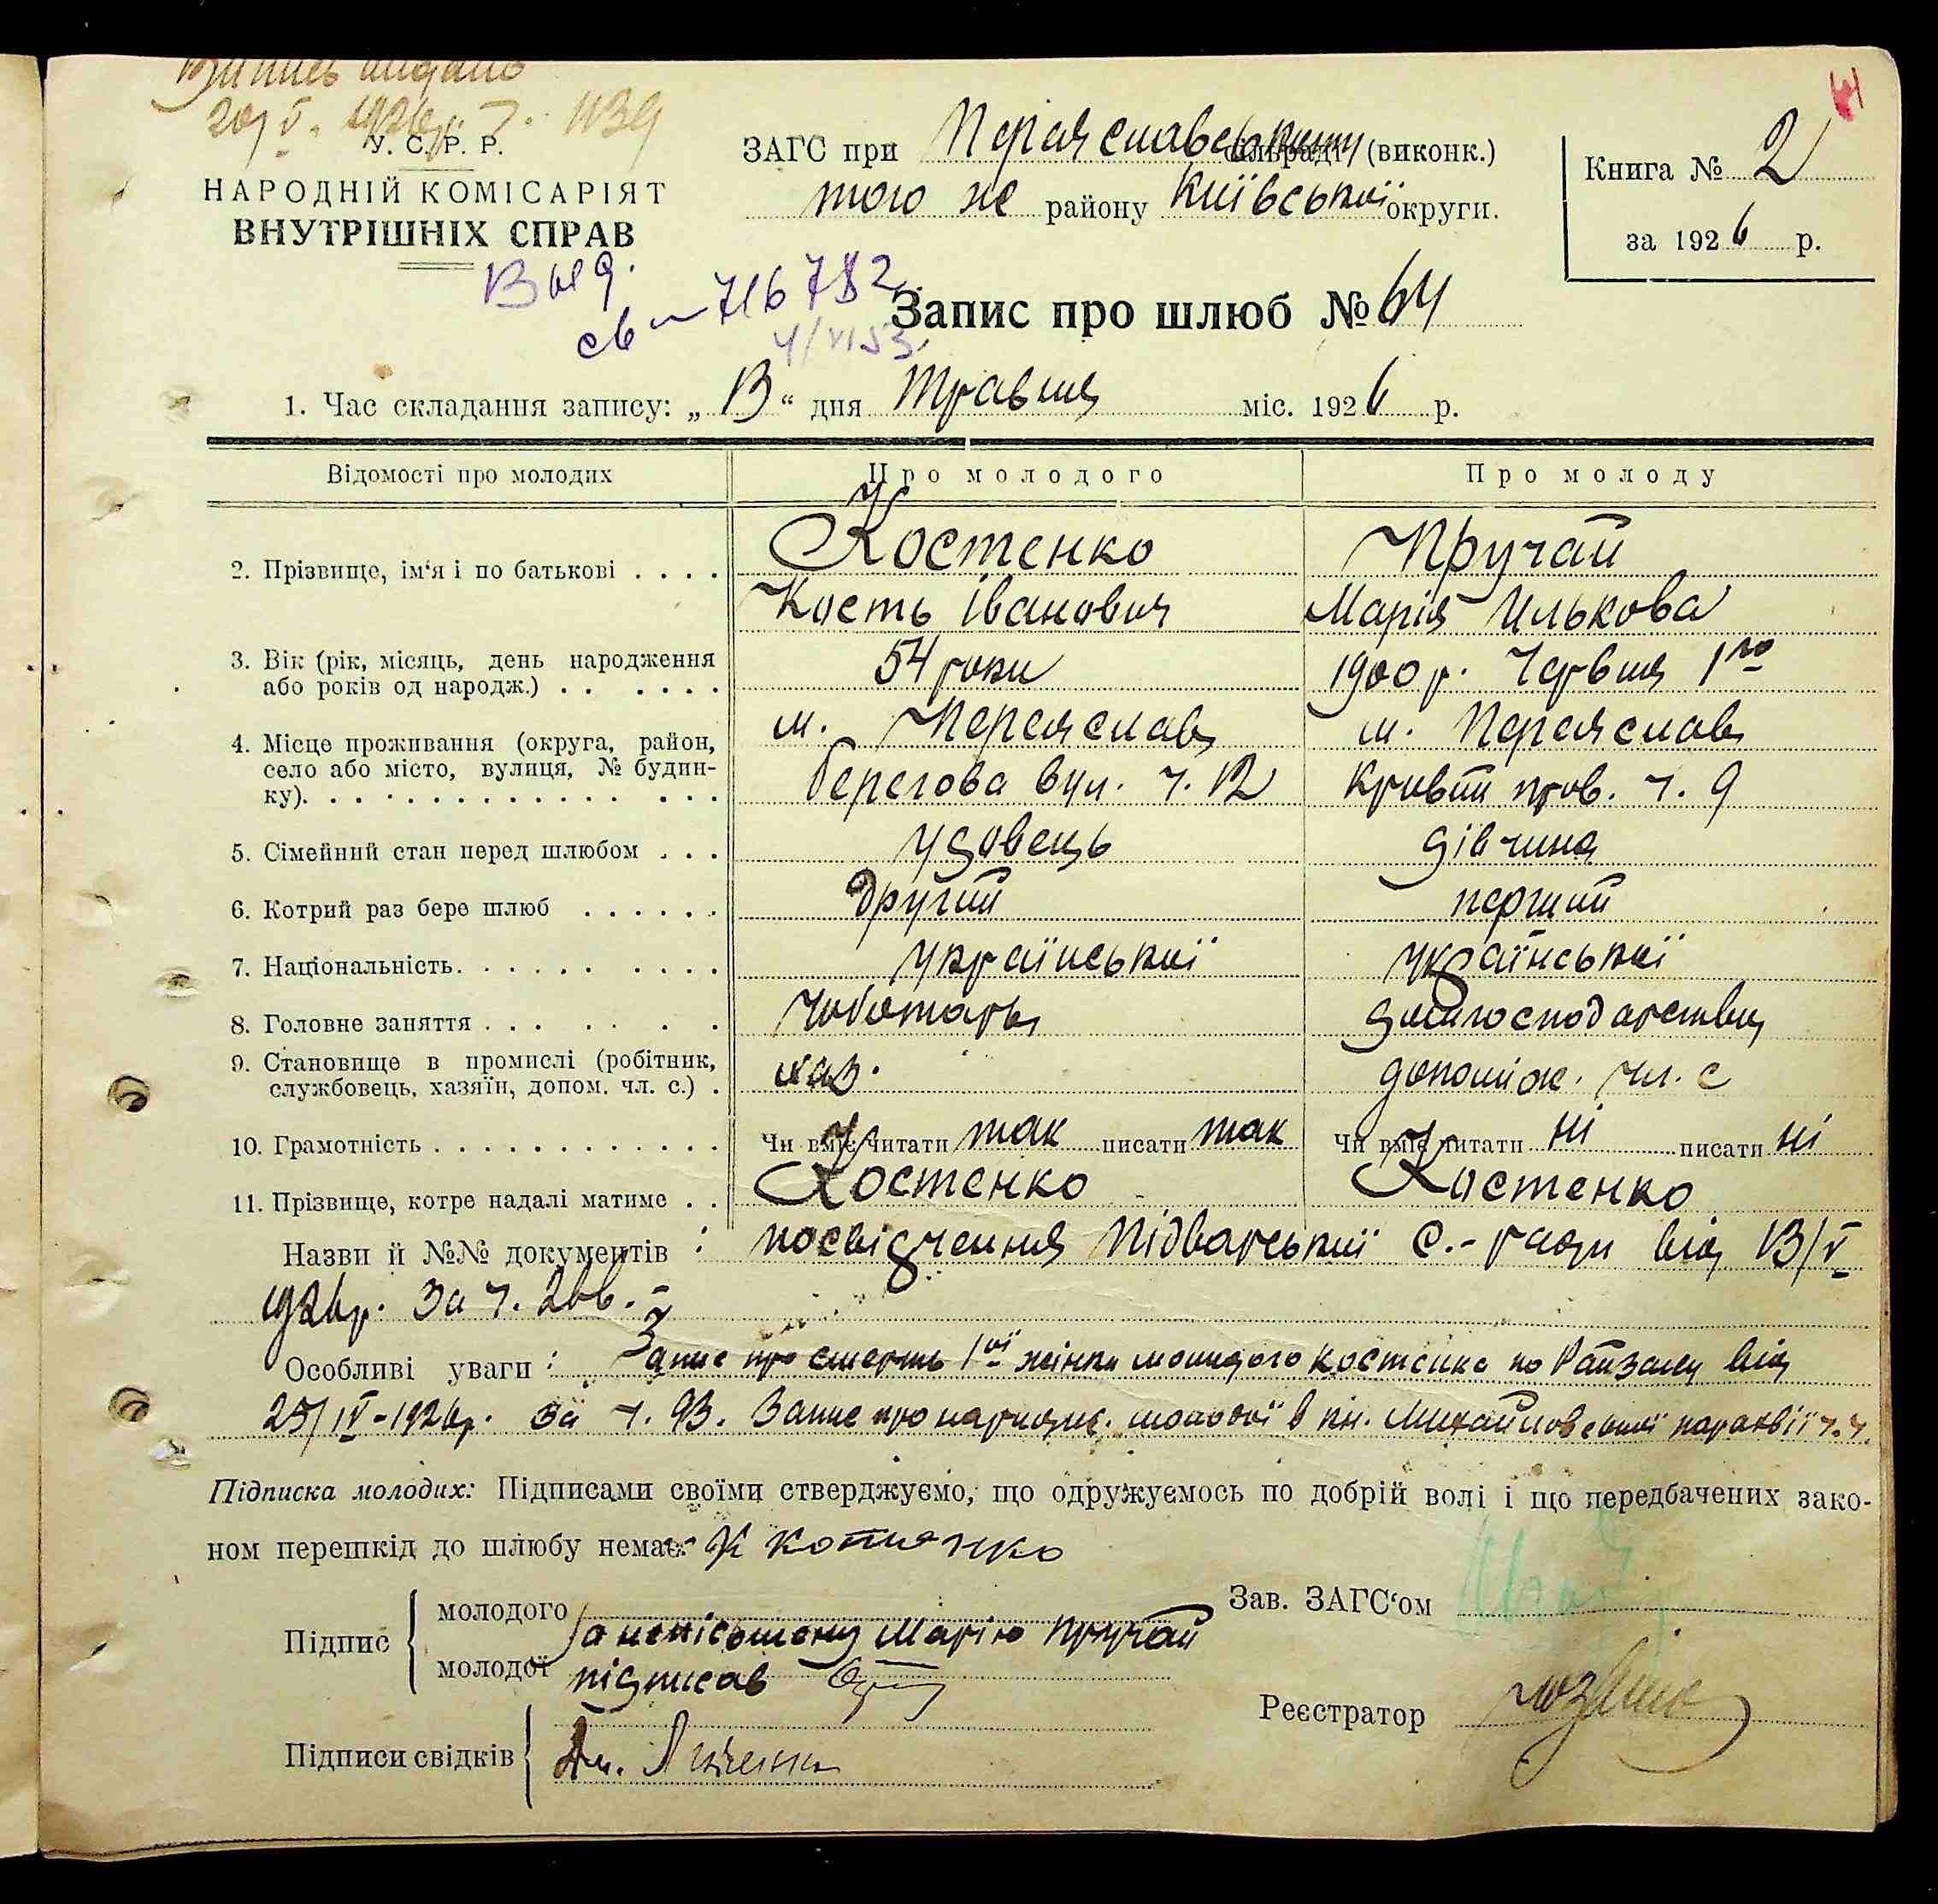 Випись видано
20/V. 1926р. ч. 1139
У. С. Р. Р.
НАРОДНІЙ КОМІСАРІЯТ
ВНУТРІШНІХ СПРАВ
ЗАГС при Переяславському сільраді (виконк.)
того же району Київської округи.
Книга № 2
за 1926 р.
Выд.
св 716782
4/VI 53.
Запис про шлюб № 64
1. Час складання запису: „13“ дня Травня міс. 1926 р.
Відомості про молодих Про молодого Про молоду
2. Прізвище, ім‘я і по батькові . . . . Костенко Пручай
Кость Іванович Марія Илькова
3. Вік (рік, місяць, день народження або років од народж.) . . . . . . 54 роки 1900 р. Червня 1го
4. Місце проживання (округа, район, м. Переяслав м. Переяслав
село або місто, вулиця, № будин-
ку). . . . . . . . . . . . . . . . . Берегова вул. ч. 12 Кривий пров. ч. 9
5. Сімейний стан перед шлюбом . . . удовець дівчина
6. Котрий раз бере шлюб . . . . . . другий перший
7. Національність. . . . . . . . . . української української
8. Головне заняття . . . . . . . чоботарь домгосподарства
9. Становище в промислі (робітник,
службовець, хазяїн, допом. чл. с.) . хаз. допоміж. чл. с
10. Грамотність . . . . . . . . . . . . Чи вміє читати так писати так Чи вміє читати ні писати ні
11. Прізвище, котре надалі матиме . . Костенко Костенко
Назви й №№ документів : посвідчення Підварської С.-ради від 13/V
1926р. За ч. 266.-
Особливі уваги : Запис про смерть 1ої жінки молодого Костенка по Райзагсу від
25/IV-1926р. за ч. 93. Запис про народж. молодої в кн. Михайловської парахвії ч. 4.
Підписка молодих: Підписами своїми стверджуємо, що одружуємось по добрій волі і що передбачених зако-
ном перешкід до шлюбу немає. К
Підпис
молодого
За неписьмену Марію Пручай
молодої підписав
Зав. ЗАГС‘ом
Реєстратор
Підписи свідків